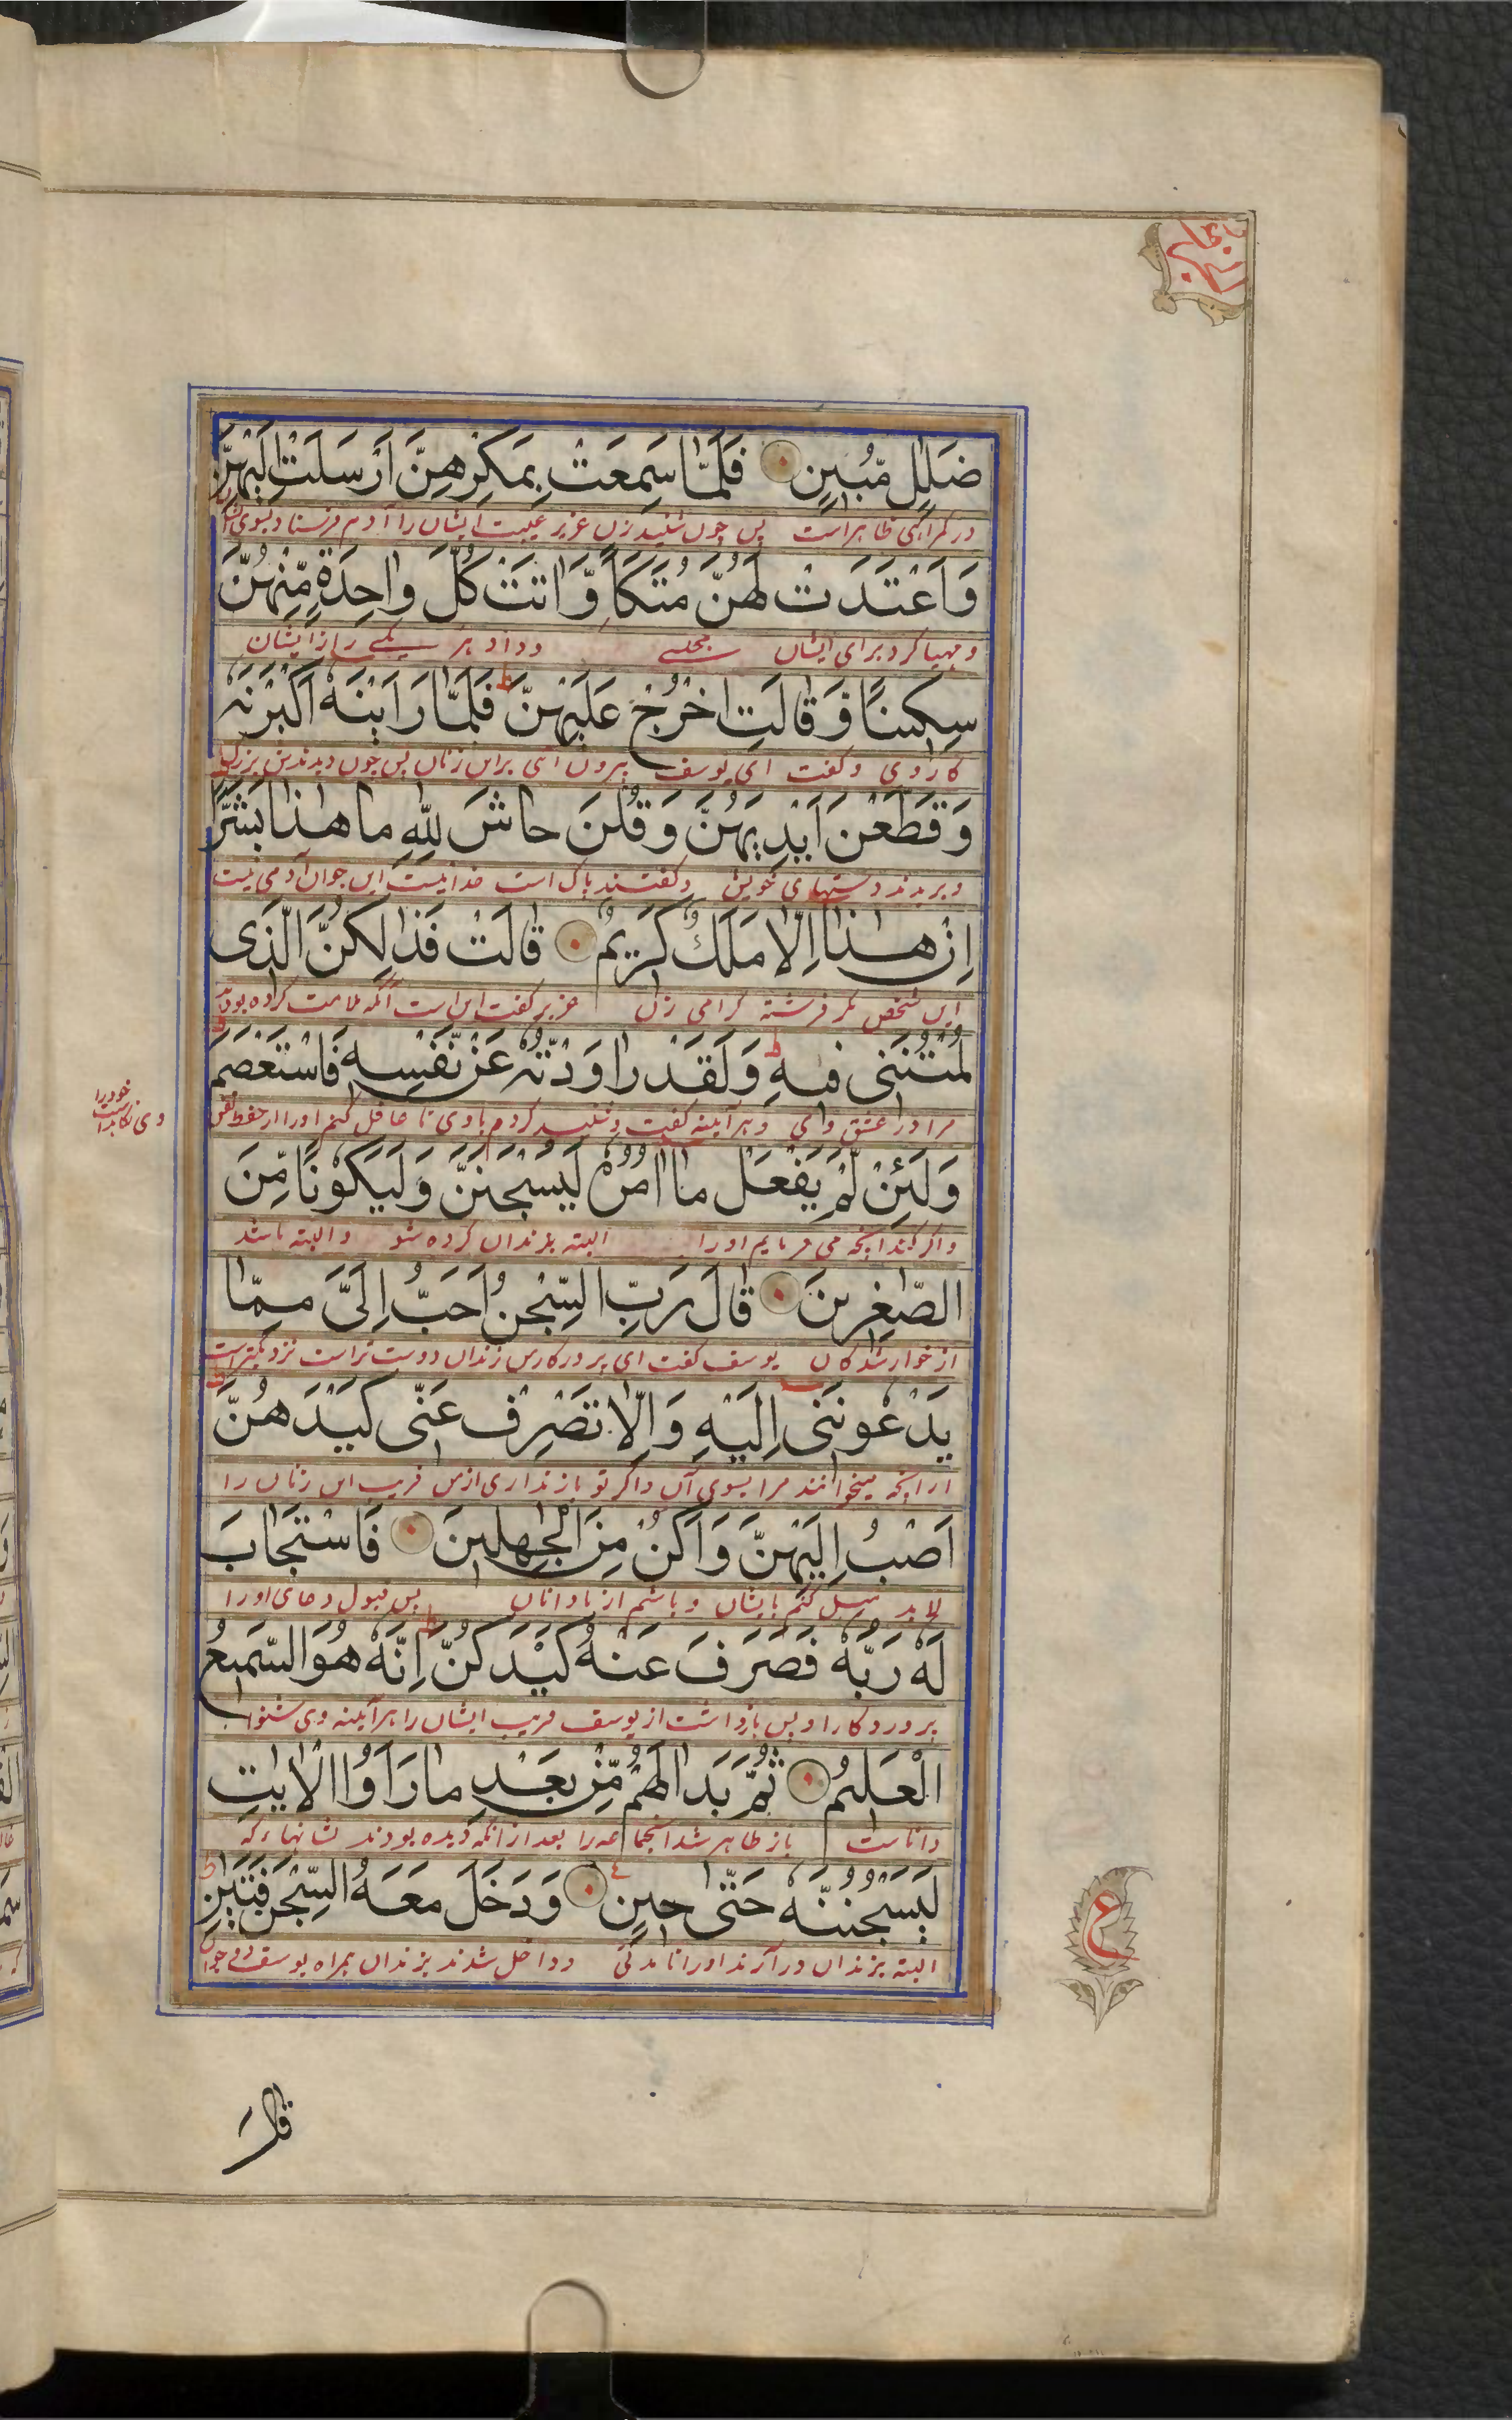 ضَلٰلٍ مُّبِينٍ فَلَمَّا سَمِعَتْ بِمَكْرِهِنَّ أَرْسَلَتْ إِلَيْهِنَّ
در گمراهی ظاهر است پس چون شنید زن عزیز غیبت ایشان را آدم فرستاد بسوی
وَاَعْتَدَتْ لَهُنَّ مُتَّكَاً وَّاٰتَتْ كُلَّ وٰاحِدَةٍ مِّنْهُنَّ
و مهیا کرد برای ایشان مجلسے و داد هر یکے را از ایشان
سِكِّينًا وَّقٰالَتِ اخْرُجْ عَلَيْهِنَّ ط فَلَمَّا رَاَيْنَهٗ اَكْبَرْنَهٗ
کاردی و گفت ای یوسف بیرون آئی براین زنان پس چون دیدندش بزرگ
وَقَطَّعْنَ اَيْدِيَهُنَّ وَقُلْنَ حٰاشَ لِلّٰهِ مٰا هٰذٰا بَشَرًا
و بریدند دستهای خویش و گفتند پاک است خدا نیست این جوان آدمی نیست
اِنْ هٰذٰا اِلَّا مَلَكٌ كَرِيمٌ قٰالَتْ فَذٰلِكُنَّ الَّذِى
این شخص مگر فرشته گرامی زن عزیز گفت این است آنکه ملامت کرده بودید
لُمْتُنَّنِى فِيهِ ط وَلَقَدْ رٰاوَدْتُّهٗ عَنْ نَّفْسِهِ فَاسْتَعْصَمَ ط
مرا در عشق وای و هر آینه گفت و شنید کردم باوی تا غافل کنم او را از حفظ نفس
خود را
وی نگاهداشت
وَلَئِنْ لَّمْ يَفْعَلْ مٰا اٰمُرُهٗ لَيُسْجَنَنَّ وَلَيَكُونًا مِّنَ
و اگر نکند آنچه می فرمایم او را البته بزندان کرده شود و البته باشد
الصّٰغِرِينَ قٰالَ رَبِّ السِّجْنُ اَحَبُّ اِلَىَّ مِمَّا
از خوار شدگان یوسف گفت ای پروردگار من زندان دوست تر است نزدیک
يَدْعُونَنِى اِلَيْهِ وَاِلَّا تَصْرِفْ عَنِّى كَيْدَهُنَّ
از آنچه میخوانند مرا بسوی آن و اگر تو باز نداری از من فریب این زنان را
اَصْبُ اِلَيْهِنَّ وَاَكُنْ مِّنَ الْجٰهِلِينَ فَاسْتَجٰابَ
لابد میل کنم بایشان و باشم از نادانان پس قبول دعای او را
لَهٗ رَبُّهٗ فَصَرَفَ عَنْهُ كَيْدَكُنَّ ط اِنَّهٗ هُوَ السَّمِيعُ
پروردگار او پس بازداشت از یوسف فریب ایشان را هر آینه وی شنوا
الْعَلِيمُ ثُمَّ بَدٰا لَهُمْ مِّنْ بَعْدِ مٰا رَاَوُا الْاٰيٰتِ
دانا ست باز ظاهر شد آنجماعه را بعد از آنکه دیده بودند نشانها که
لَيَسْجُنُنَّهٗ حَتّٰى حِينٍ وَدَخَلَ مَعَهُ السِّجْنَ فَتَيٰنِ ط
البته بزندان در آرند او را تا مدتی و داخل شدند بزندان همراه یوسف دو جوان
ع
قٰالَ